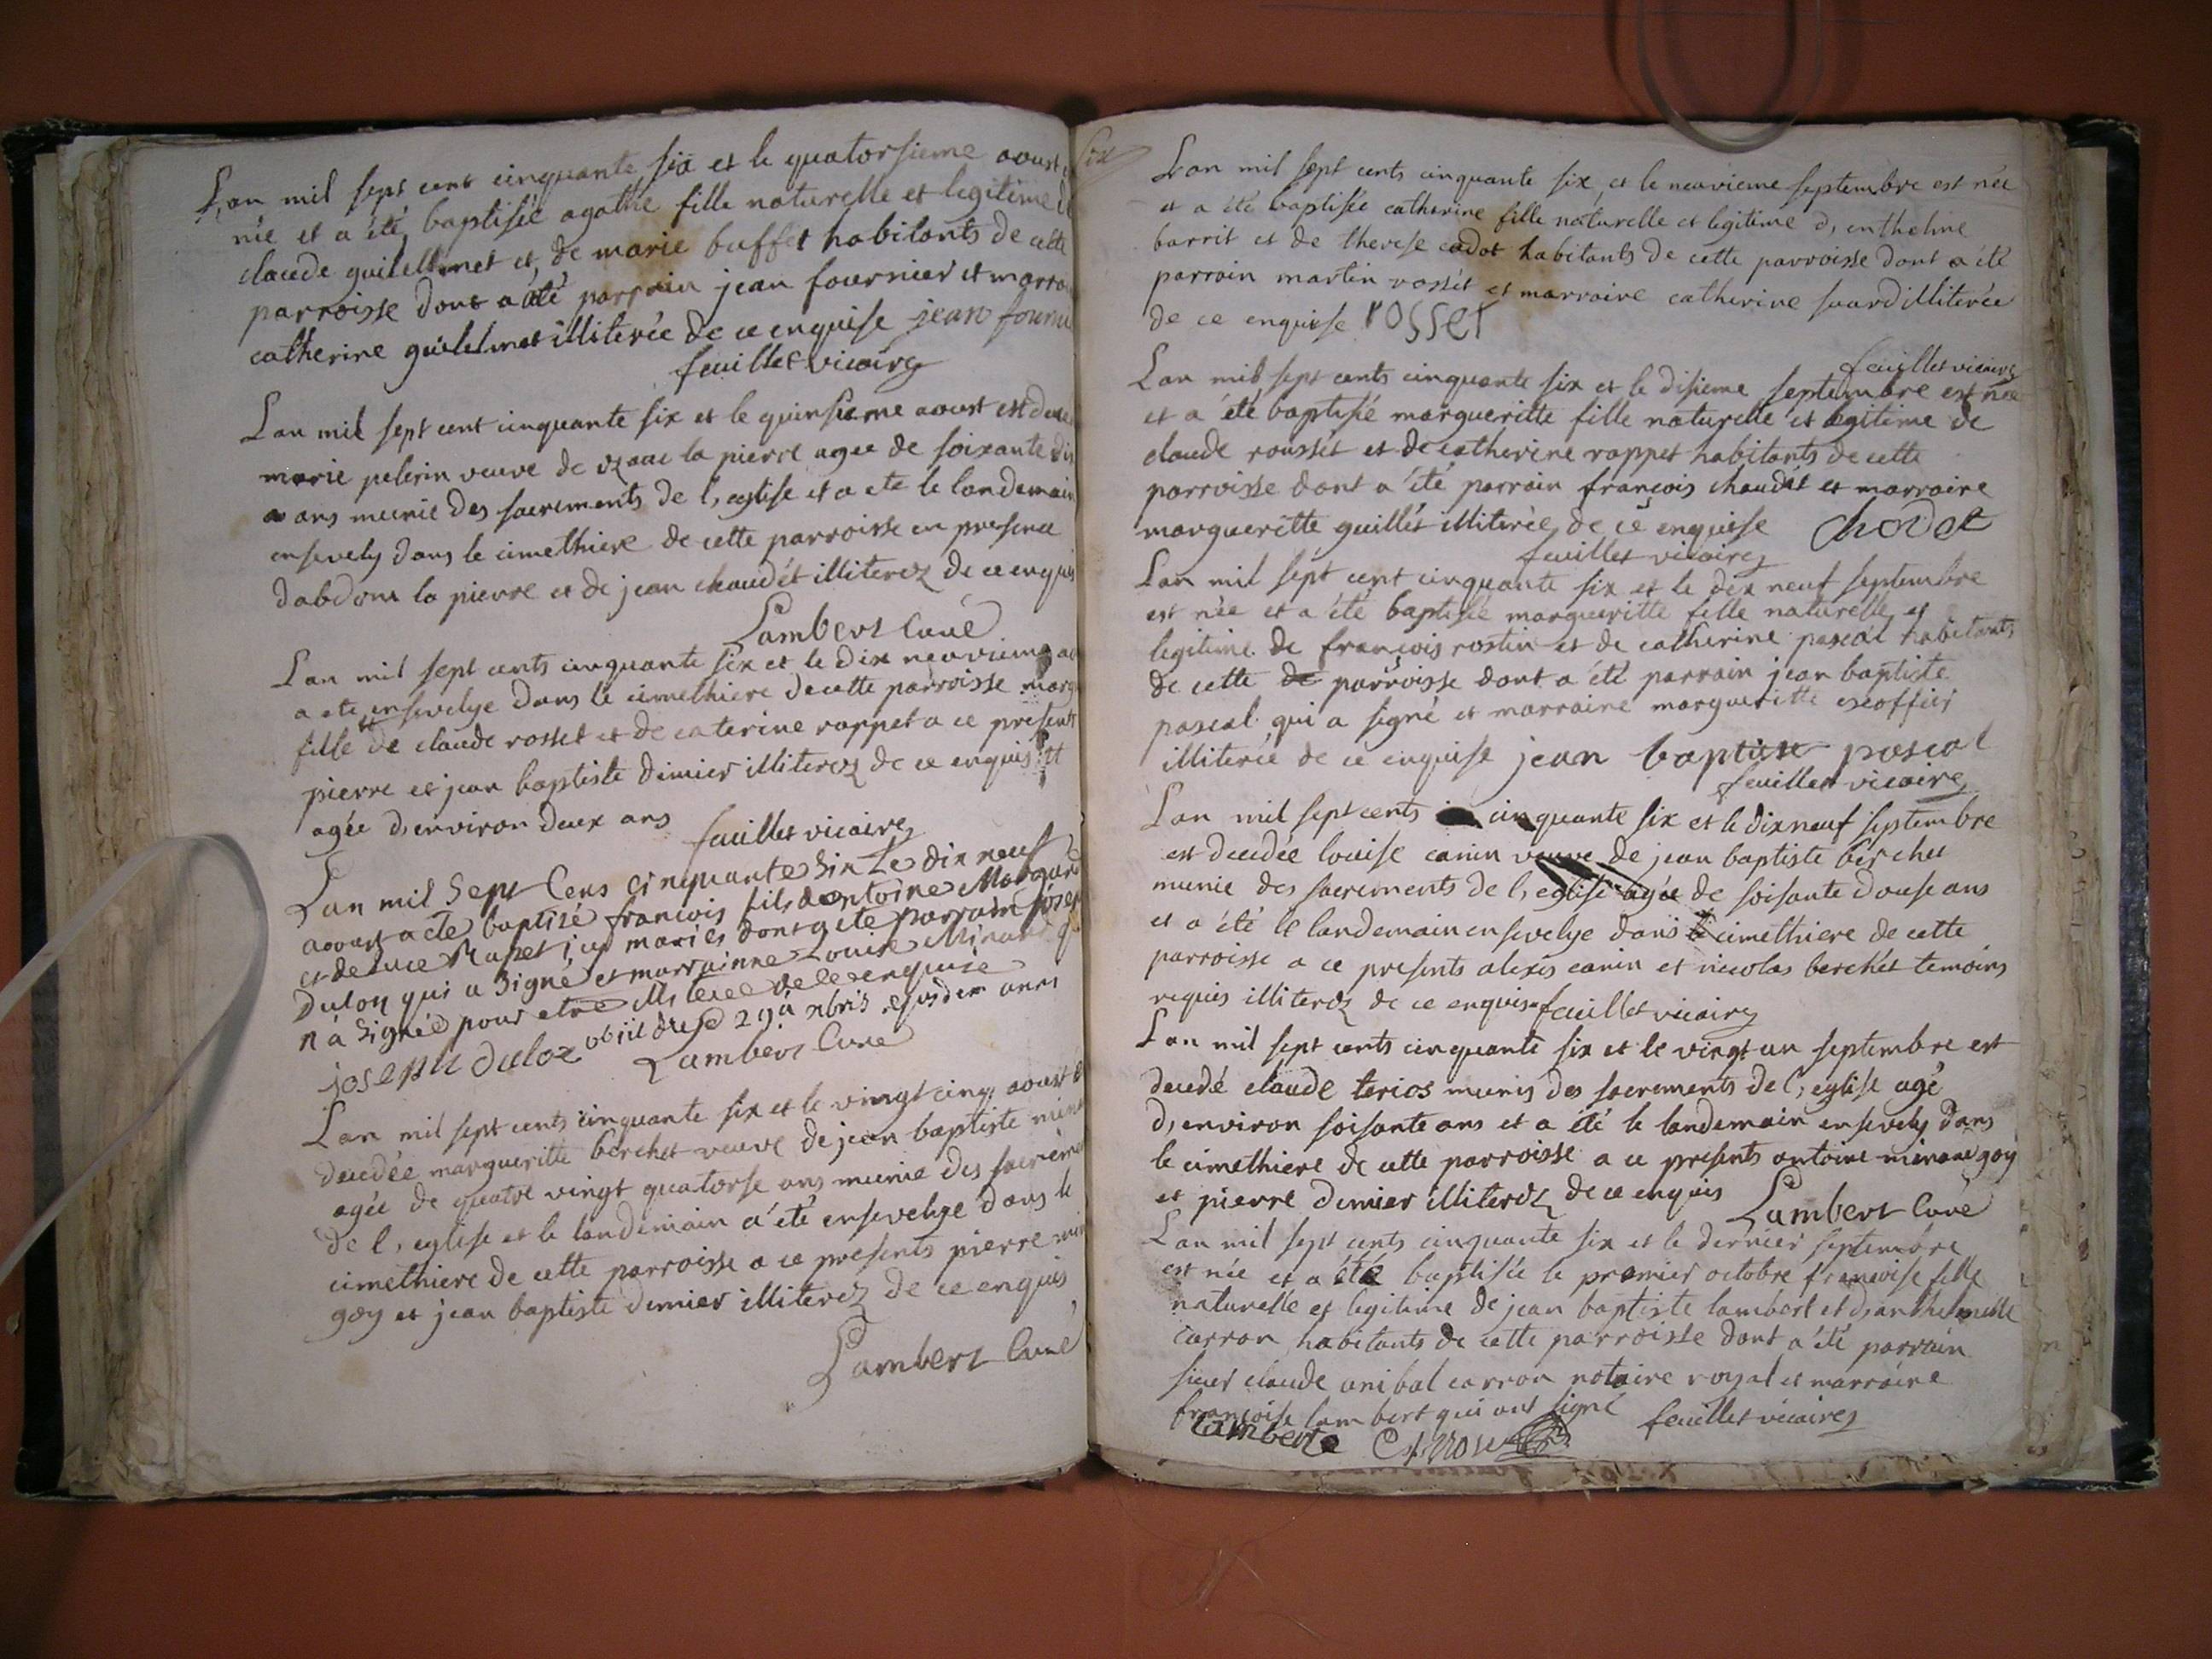 L,an mil sept cent cinquante six et le quatorsieme aoust
née et a été baptisée agathe fille naturelle et legitime
claude guilellmet et de marie buffet habitants de cette
parroisse dont a été parrain jean fournier et marra
catherine guilelmet illiterée de ce enquise jean fourni
feuillet vicaire
L an mil sept cent cinquante six et le quinsieme aoust est
marie pelerin veuve de la pierre agee de soixante dix
ans munie des sacrements de l,eglise et a ete le landemain
ensevely dans le cimethiere de cette parroisse en presence
dabdom la pierre et de jean chaudét illiterez de ce enquis
Lambert Curé
L an mil sept cents cinquante six et le dix neuvieme ao
a ete ensevelye dans le cimethiere de cette parroisse marg
fille de claude rosset et de caterine rappet a ce presents
pierre et jean baptiste dimier illiterez de ce enquis et
agée d,environ deux ans
feuillet vicaire
L an mil Sept Cens cinquante Six Le dix neuf
aoust a ete baptisé francois fils dantoine
et de Luce jcy mariés dont a ete parrain joseph
Duloz qui a Signé et marrainne Louise
n'a Signée pour etre illiterée de ce enquise
joseph duloz obiit die 29a xbris ejusdem anni
Lambert Curé
L an mil sept cents cinquante six et le vingt cinq aoust
decedée margueritte berchet veuve de jean baptiste
agée de quatre vingt quatorse ans munie des sacreme
de l, eglise et le landemain a été ensevelye dans le
cimethiere de cette parroisse a ce presents pierre
goy et jean baptiste dimier illiterez de ce enquis
Lambert Curé
six
L,an mil sept cents cinquante six, et le neuvieme septembre est née
et a été baptisée catherine fille naturelle et legitime d, entheline
barrit et de therese cadot habitants de cette parroisse dont a été
parrain martin rossét et marraine catherine suard illiterée
de ce enquise rosset
feuillet vicaire
L an mil sept cents cinquante six et le disieme septembre est née
et a été baptisée margueritte fille naturelle et legitime de
claude rousset et de catherine rappet habitants de cette
parroisse dont a été parrain françois chaudét et marraine
margueritte guillés illiterée de ce enquise chodet
feuillet vicaire
L an mil sept cent cinquante six et le dix neuf septembre
est née et a été baptisée margueritte fille naturelle et
legitime de françois rostin et de catherine pascal habitants
de cette de parroisse dont a été parrain jean baptiste
pascal qui a signé et marraine margueritte exoffier
illiterée de ce enquise jean baptiste pascal
feuillet vicaire
L an mil sept cents cinquante six et le dixneuf septembre
est decedée louise canin veuve de jean baptiste berchet
munie des sacrements de l,eglise agée de soisante douse ans
et a été le landemain ensevelye dans le cimethiere de cette
parroisse a ce presents alexis canin et nicolas berchét temoins
requis illiterez de ce enquise feuillet vicaire
L an mil sept cents cinquante six et le vingt un septembre est
decedé claude terios munis des sacrements de l, eglise agé
d,environ soisante ans et a été le landemain ensevely dans
le cimethiere de cette parroisse a ce presents antoine goy
et pierre dimier illiterez de ce enquis Lambert Curé
L an mil sept cents cinquante six et le dernier septembre
est née et a été baptisée le premier octobre francoise fille
naturelle et legitime de jean baptiste lambert et
carron habitants de cette parroisse dont a été parrain
sieur claude anibal carron notaire royal et marraine
françoise lambert qui ont signé feuillet vicaire
lamberte